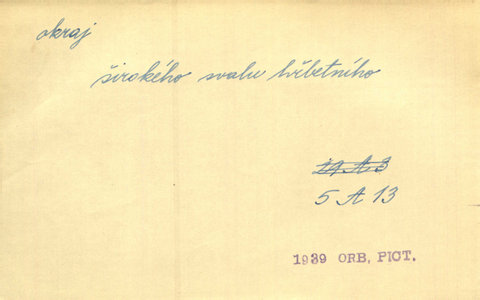 okraj
širského svalu hřbetního
19 A 3
5 A 13
1939 ORB. PICT.